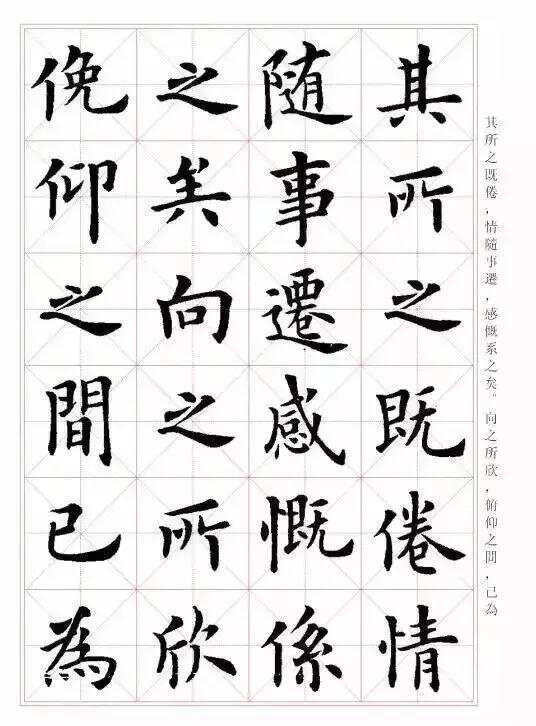 其所之既倦情
随事遷感慨係
之矣向之所欣
俛仰之間已為
其所之既倦，情隨事遷，感慨系之矣。向之所欣，俯仰之間，已為